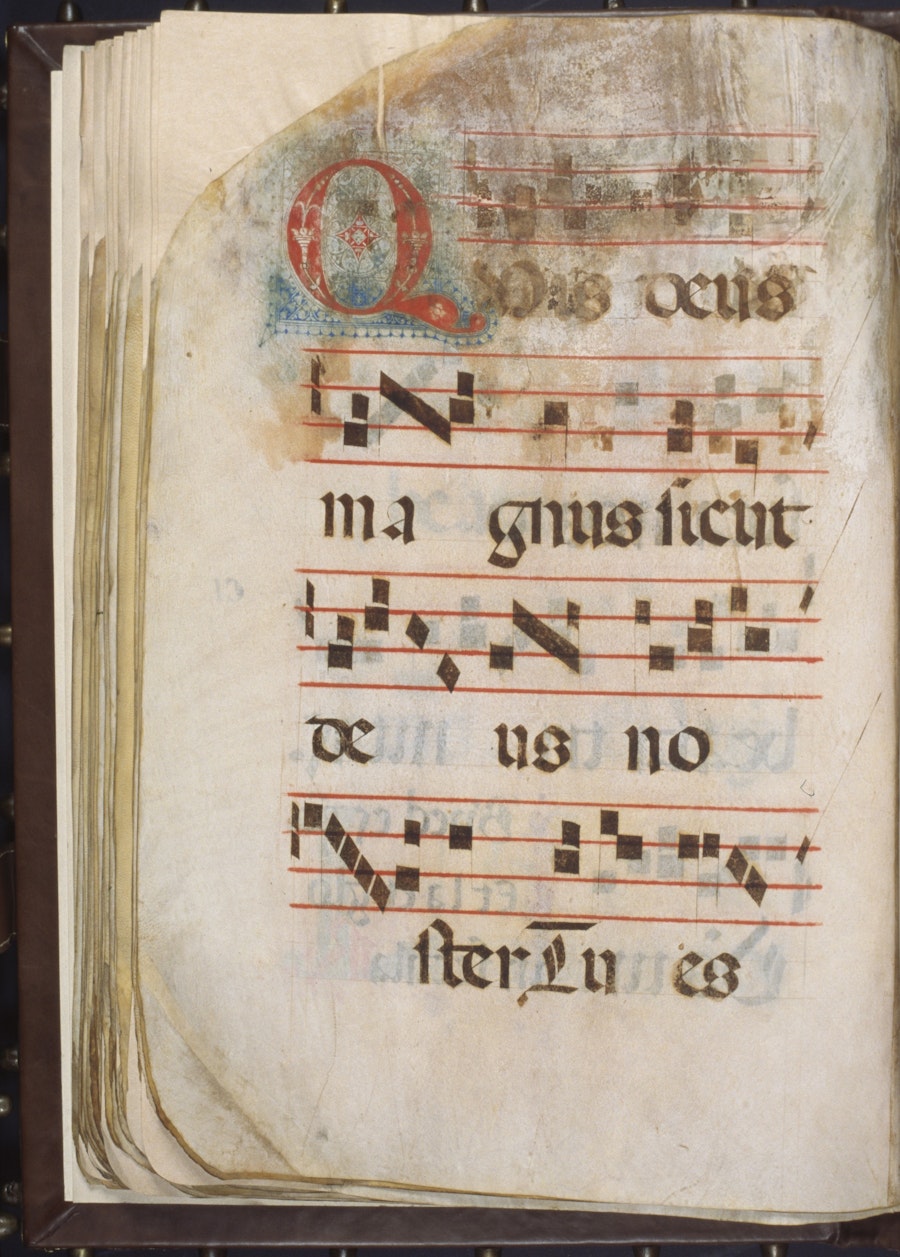 QVis deus
ma gnus sicut
de us no
ster Tu es